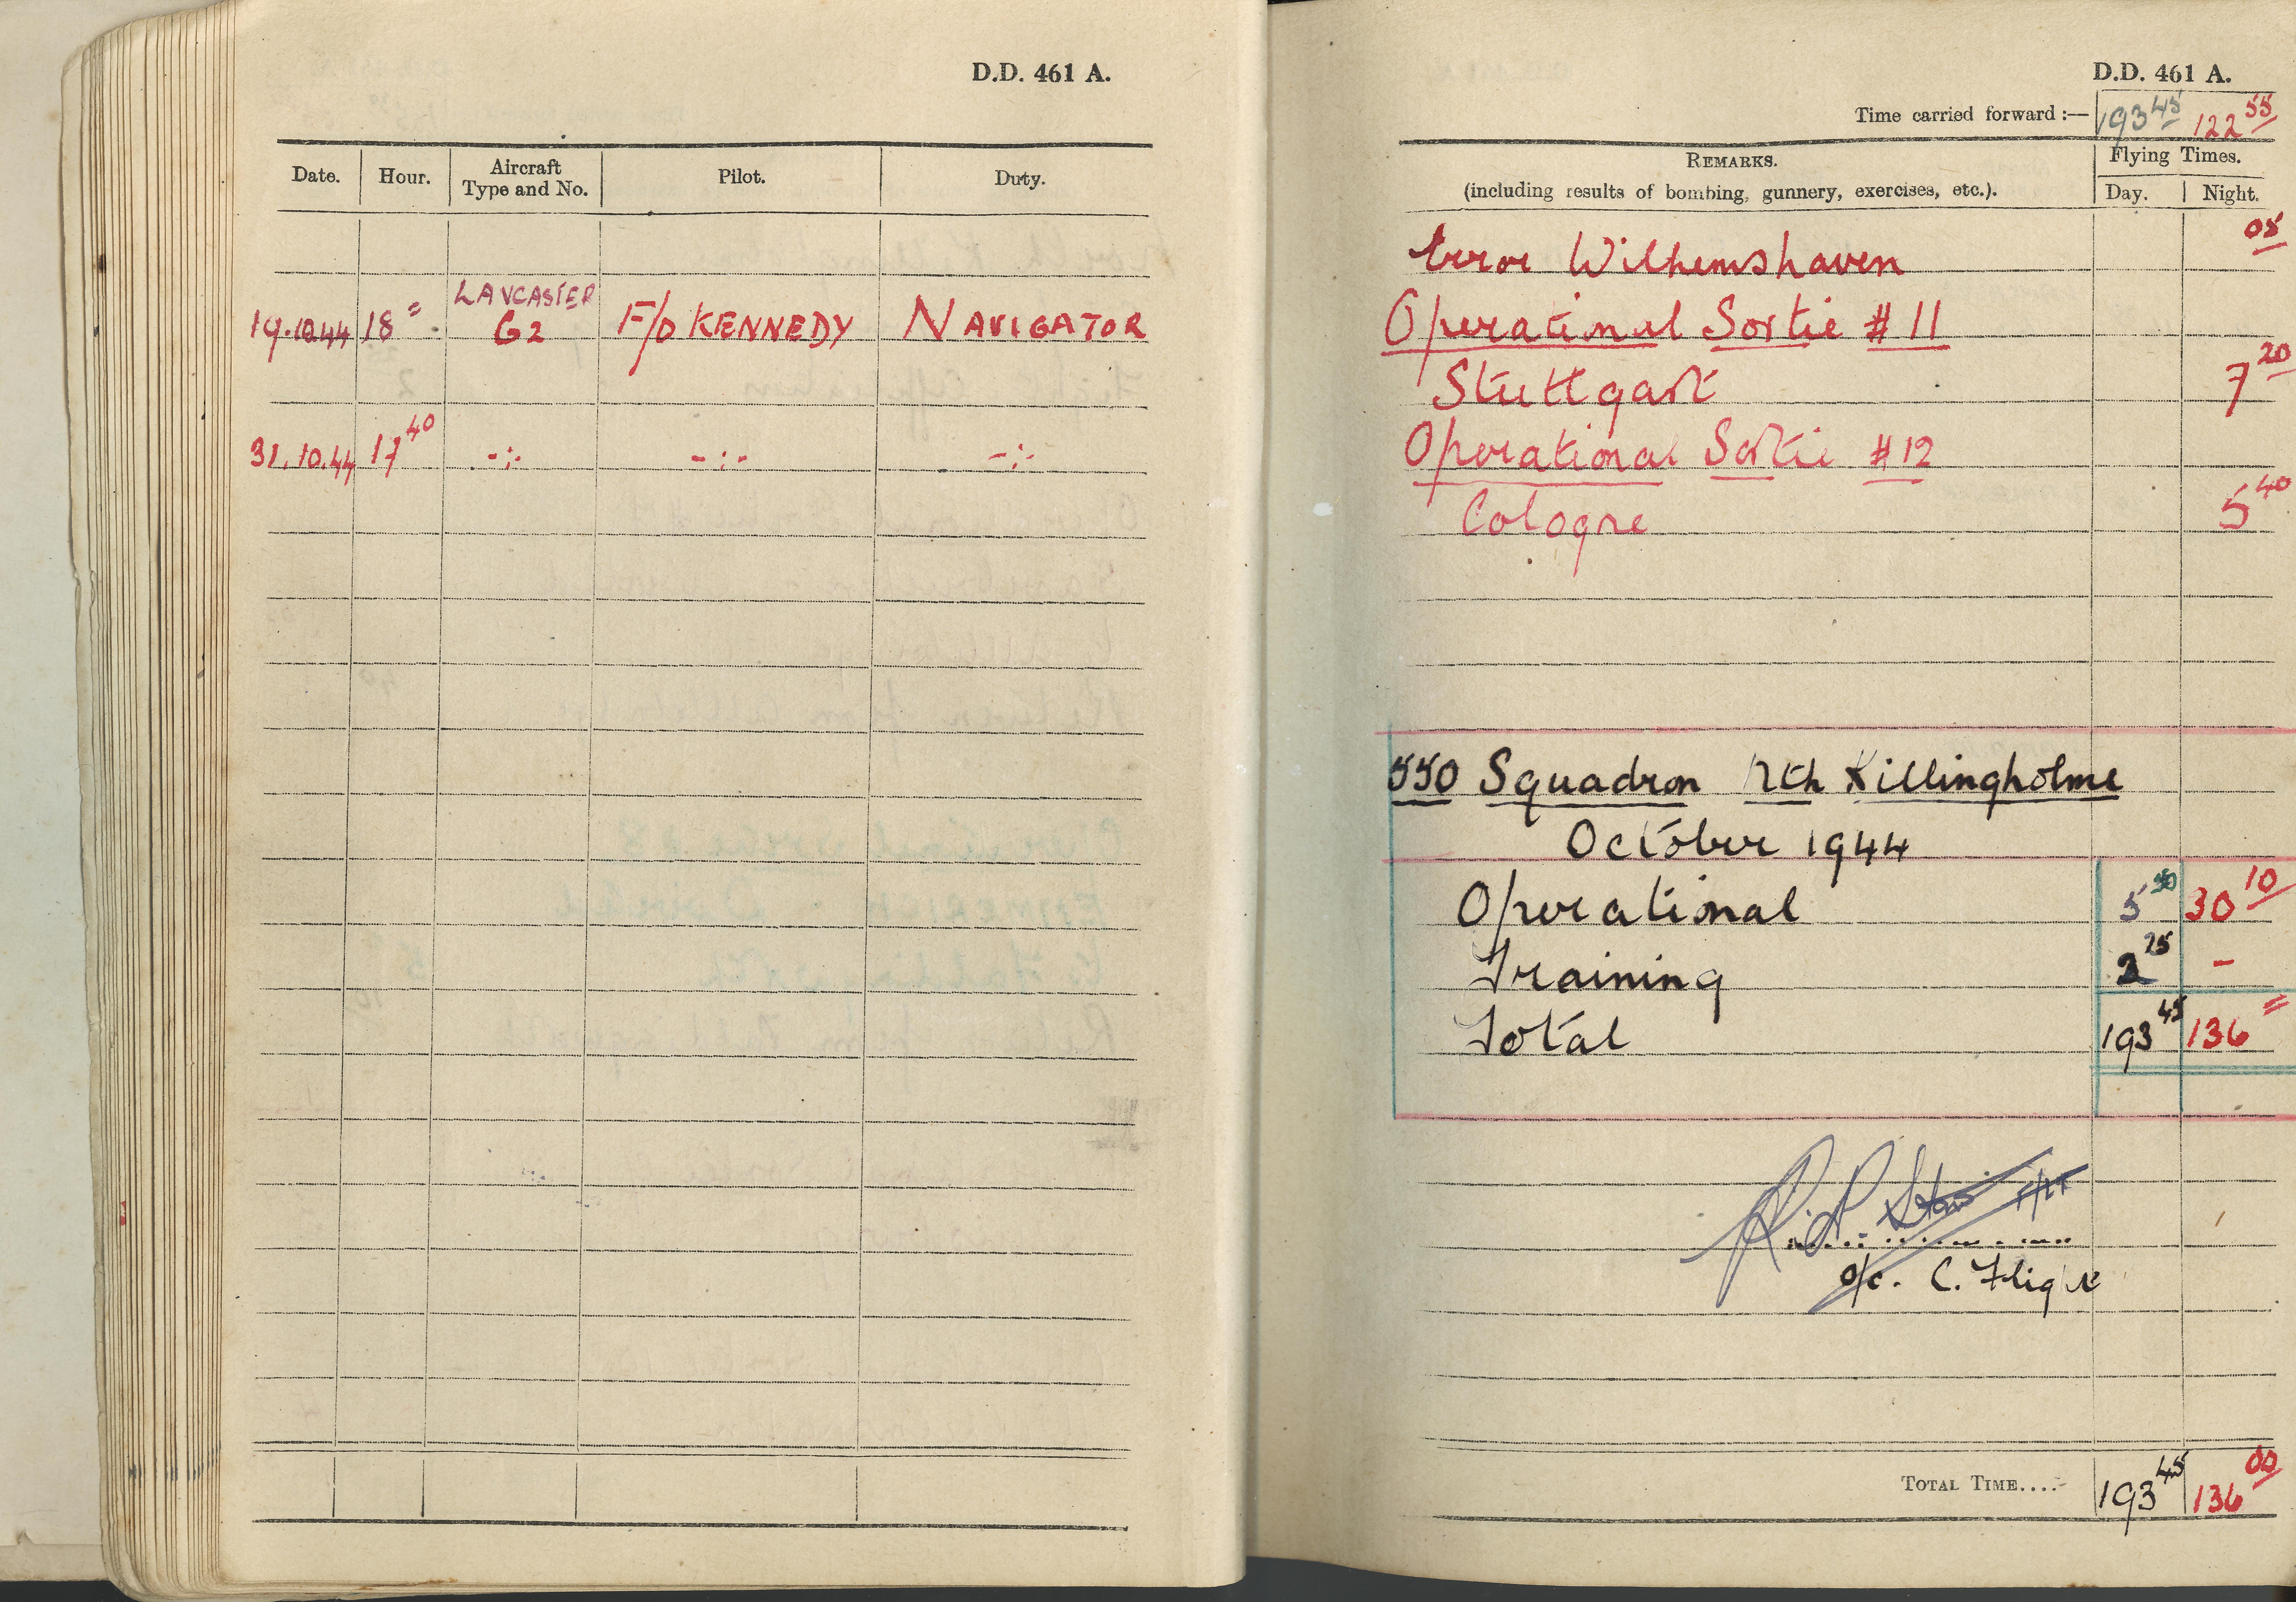 D.D. 461 A.
Date. Hour. Aircraft Type and No. Pilot. Duty.
LANCASTER
19.10.44 18= G2 F/O KENNEDY NAVIGATOR
31.10.44 17 40 -:- -:- -:-
D.D. 461 A.
Time carried forward :— 193 45 122 55
REMARKS. Flying Times.
(including results of bombing, gunnery, exercises, etc.). Day. Night.
Error Wilhemshaven 05
Operational Sortie # 11
Stuttgart 7 20
Operational Sortie # 12
Cologne 5 40
550 Squadron Nth Killingholme
October 1944
Operational 5 50 30 10
Training 2 25 -
Total 193 45 136 =
F/Lt
o/c. C. Flight
TOTAL TIME.... 193 45 136 00